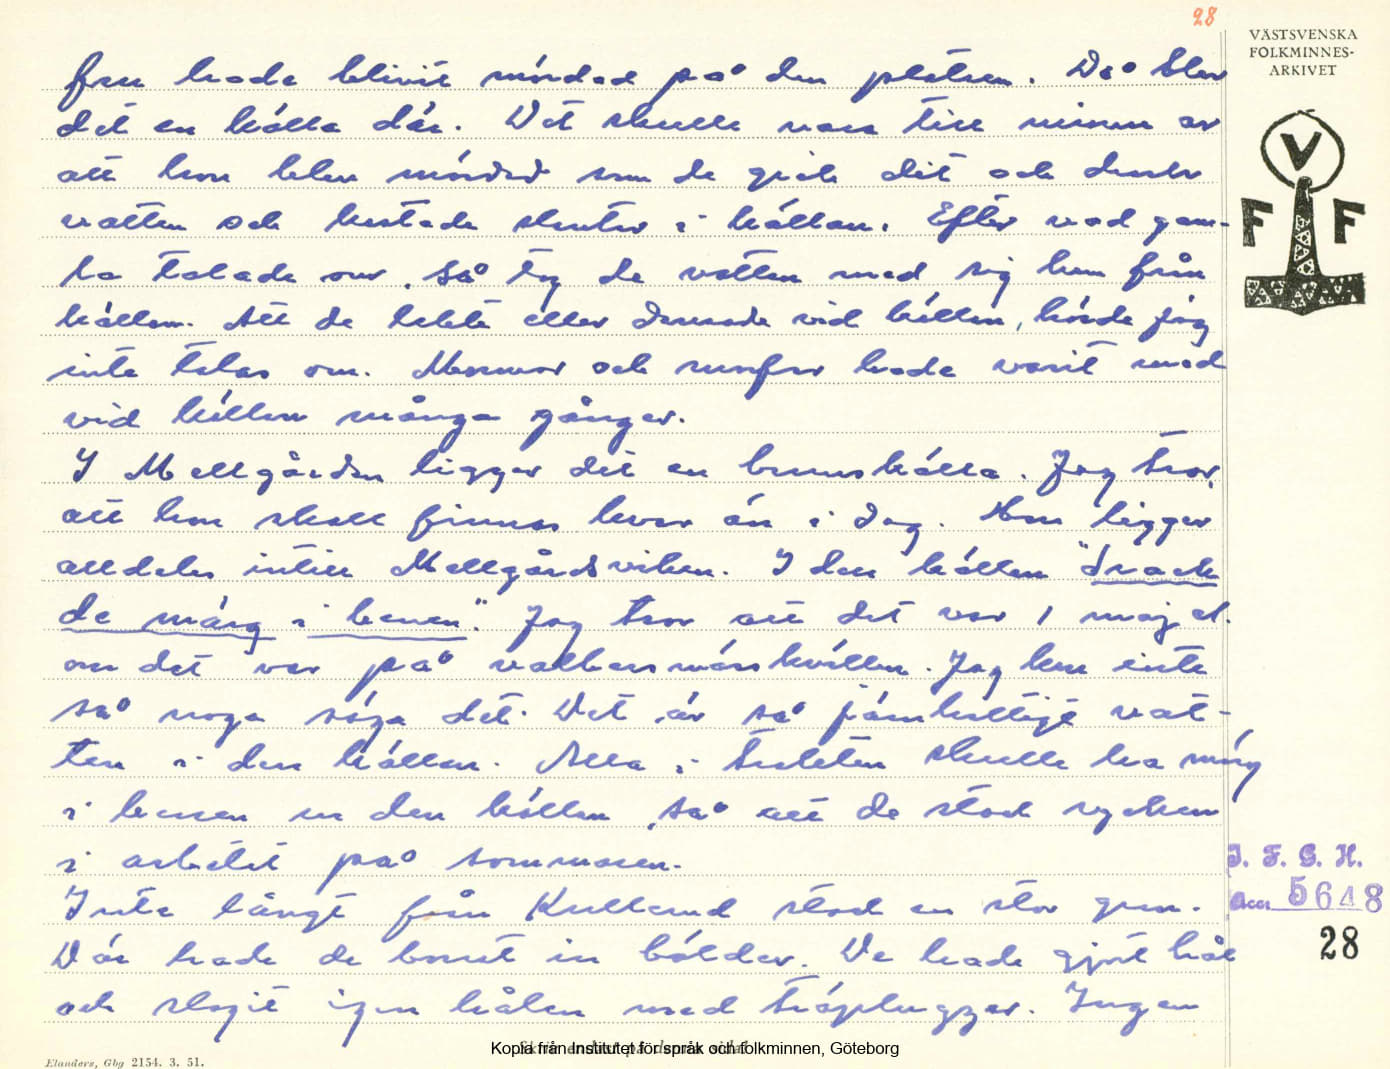 28
VÄSTSVENSKA
FOLKMINNES-
ARKIVET
V
F F
fru hade blivit mördad på den platsen. Då blev
det en källa där. Det skulle vara till minne av
att hon blev mördad som de gick dit och drack
vatten och kastade slantar i källan. Efter vad gam-
la talade om, så tog de vatten med sig hem från
källan. Att de lekte eller dansade vid källan, hörde jag
inte talas om. Mormor och morfar hade varit med
vid källan många gånger.
I Mellgården ligger det en brunskälla. Jag tror,
att hon skall finnas kvar än i dag. Hon ligger
alldeles intill Mellgårdsviken. I den källan "drack
de märg i benen". Jag tror att det var 1 maj el.
om det var på valborsmässkvällen. Jag kan inte
så noga säga det. Det är så järnhaltigt vat-
ten i den källan. Alla i trakten skulle ha märg
i benen ur den källan, så att de stod rycken
i arbetet på sommaren.
Inte långt från Kullerud stod en stor gran.
Där hade de borrat in bölder. De hade gjort hål
och slagit igen hålen med träpluggar. Ingen
I. F. G. H.
Acc. 5648
28
Elanders, Gbg 2154. 3. 51.
Kopia från Institutet för språk och folkminnen, Göteborg